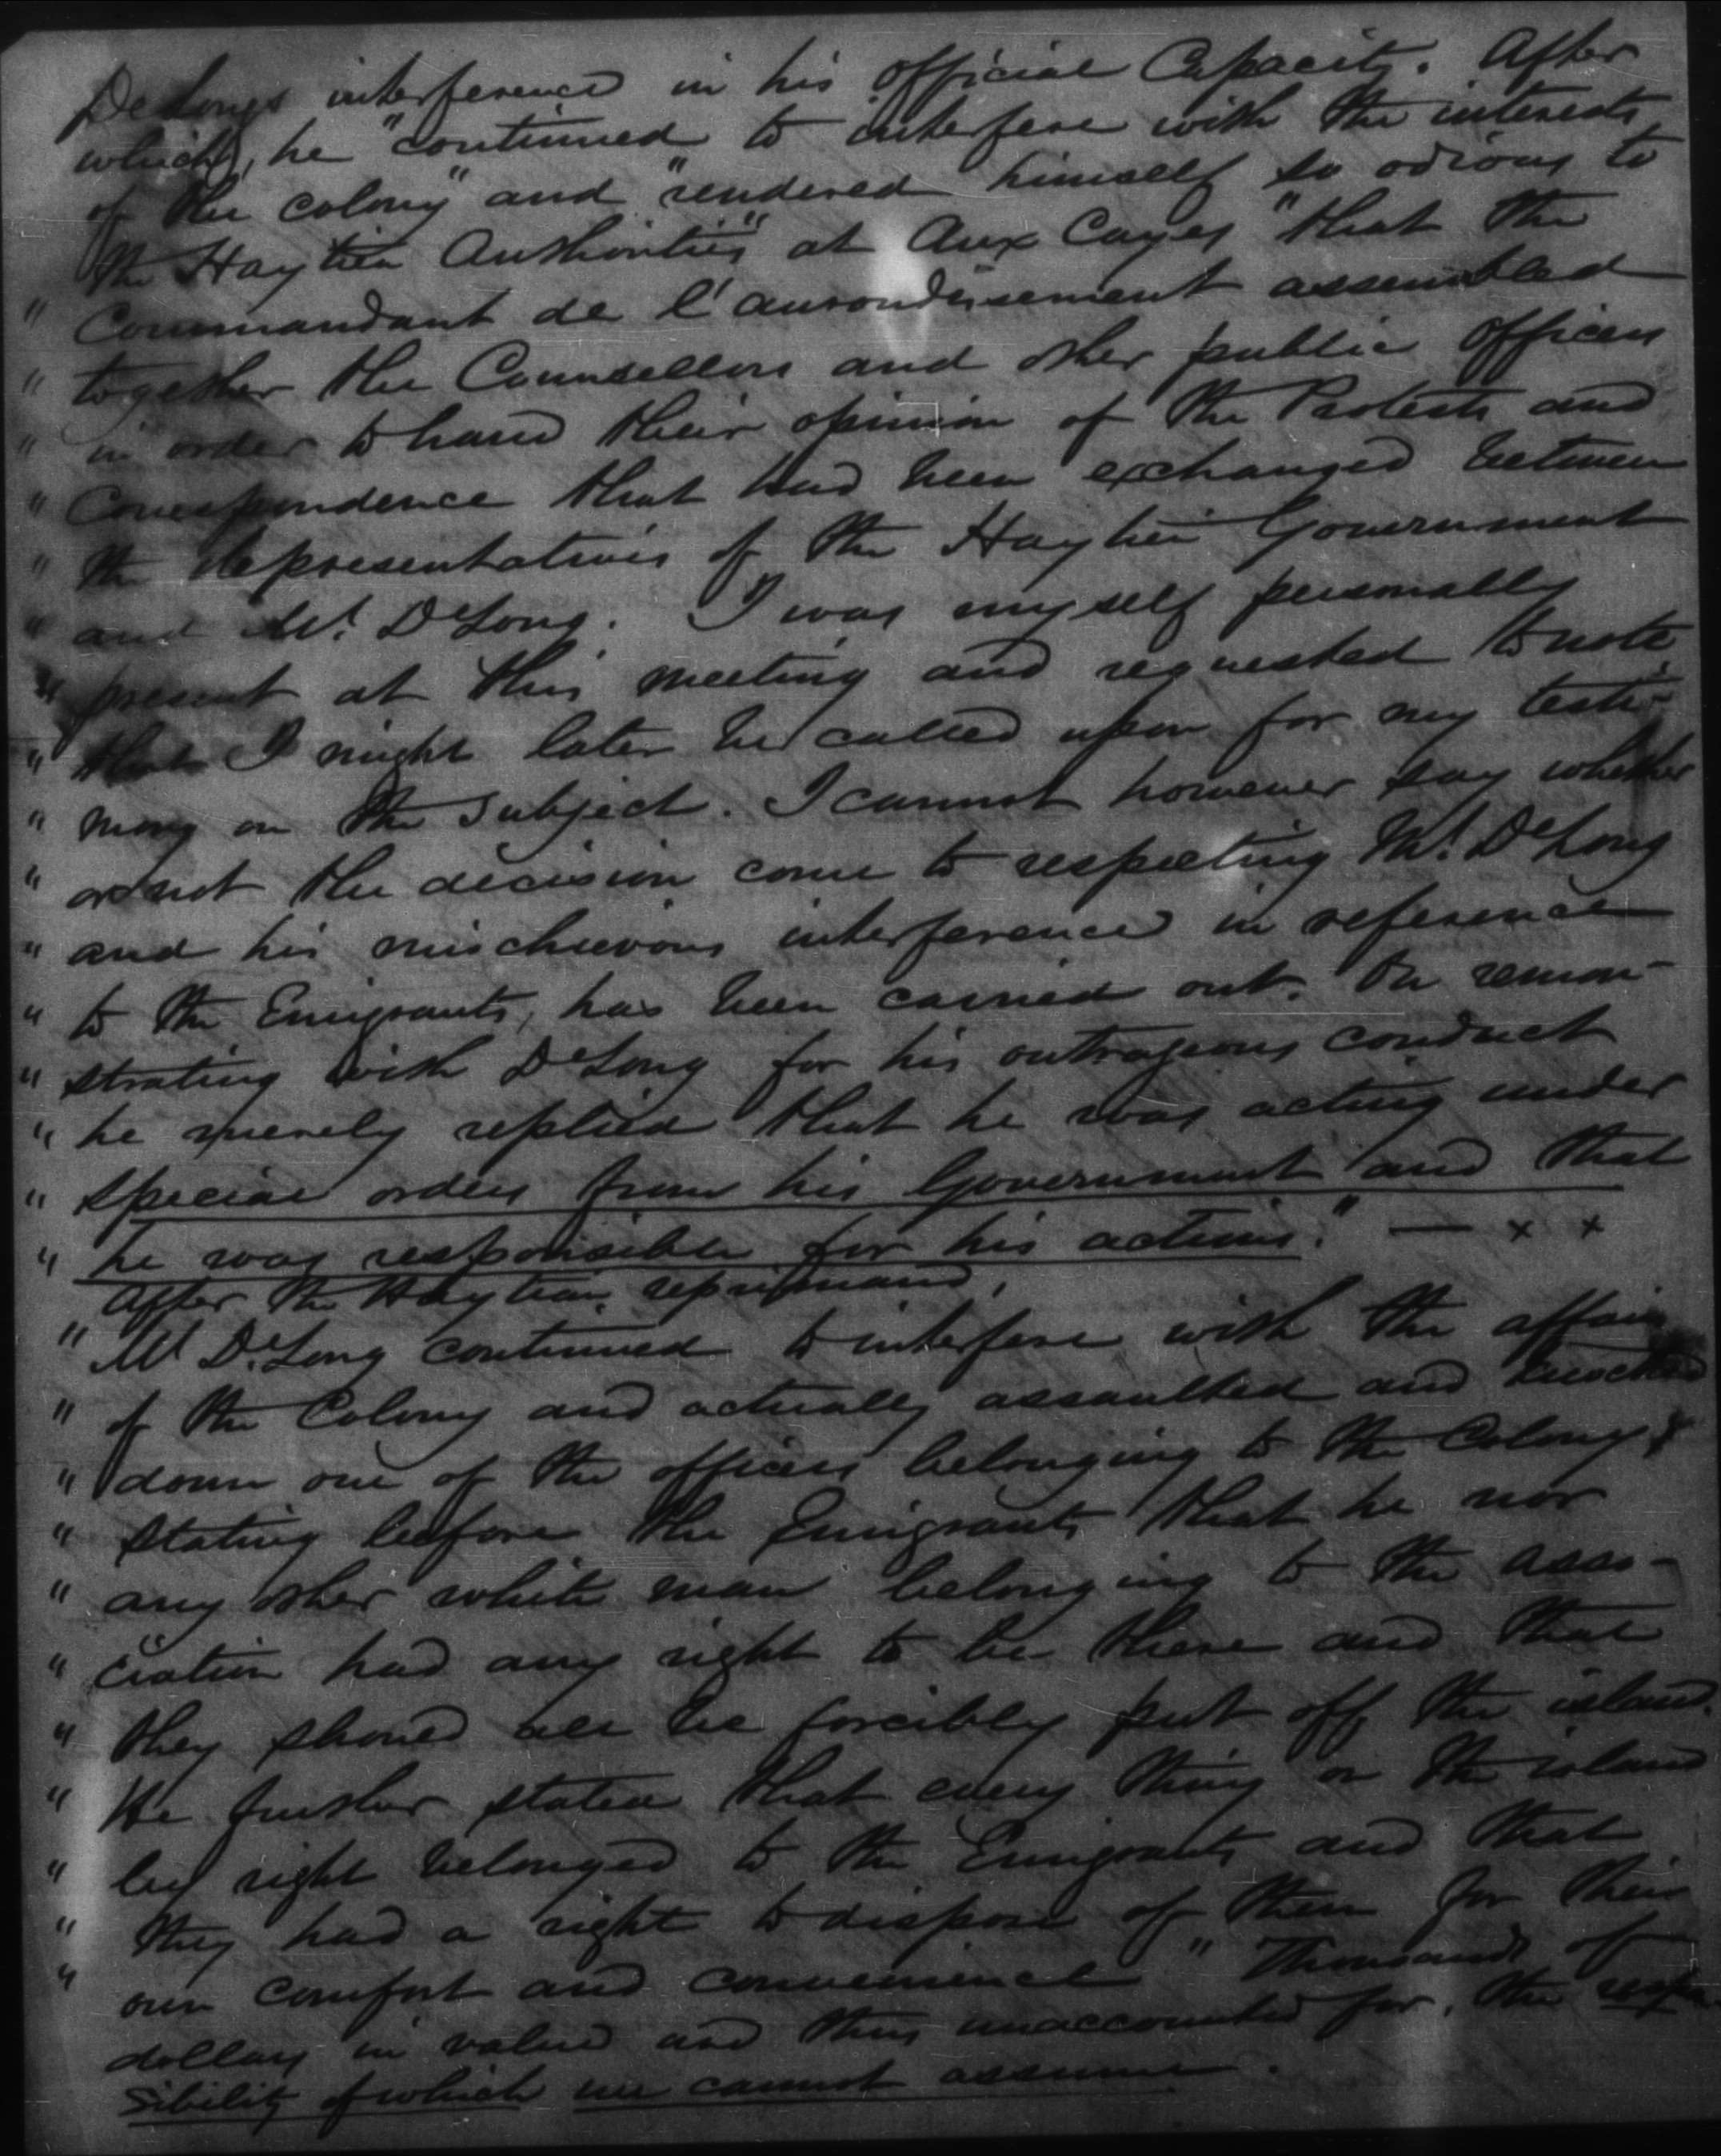 DeLongs interference in his official Capacity. After
which, he "continued to interfere with the interests
of the colony" and "rendered himself so odious to
the Haytien Authorities" at Aux Cayes "that the
" Commandant de l'aurondissement assembled
" together the Counsellors and other public officers
" in order to have their opinion of the Protests and
" Correspondence that had been exchanged between
" the representatives of the Haytien Government
" and Mr. DeLong. I was myself personally
" present at this meeting and requested to note
" that I might later be called upon for my testi-
" mony on the subject. I cannot however say whether
" or not the decision come to respecting Mr. DeLong
" and his mischievous interference in reference
" to the Emigrants, has been carried out. On remon-
" strating with DeLong for his outrageous conduct
" he merely replied that he was acting under
" special orders from his Government and that
" he was responsible for his actions." — x x
After the Haytian reprimand,
" Mr DeLong continued to interfere with the affairs
" of the Colony and actually assaulted and knocked
" down one of the officers belonging to the Colony,
" stating before the Emigrants that he nor
" any other white man belonging to the asso-
" ciation had any right to be there and that
" they should all be forcibly put off the island.
" He further stated that every thing on the island
" by right belonged to the Emigrants and that
" they had a right to dispose of them for their
" own comfort and convenience" Thousands of
dollars in value are thus unaccounted for, the respon-
sibility of which we cannot assume.